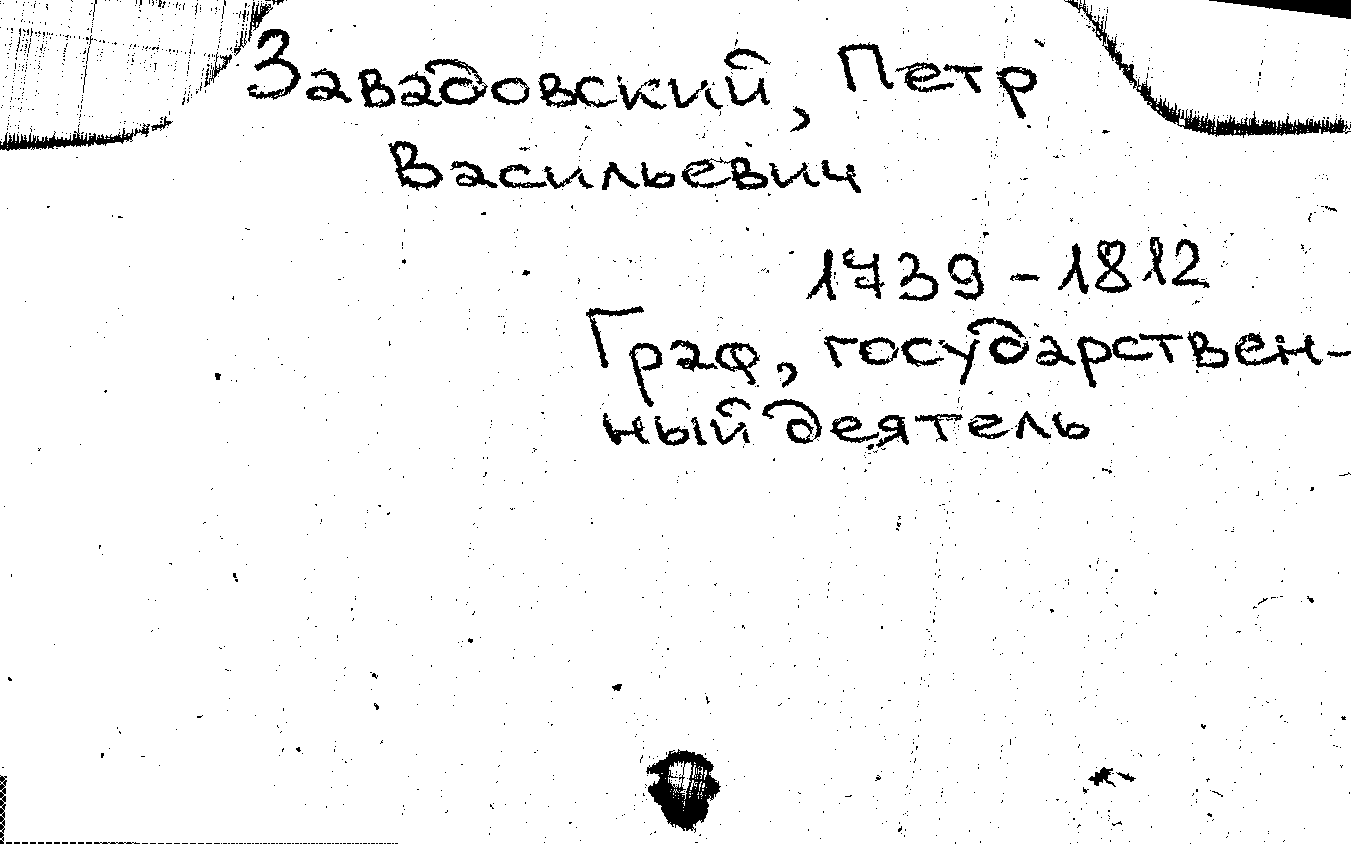 Завадовский, Петр
Васильевич
1739-1812
Граф, государствен-
ный деятель